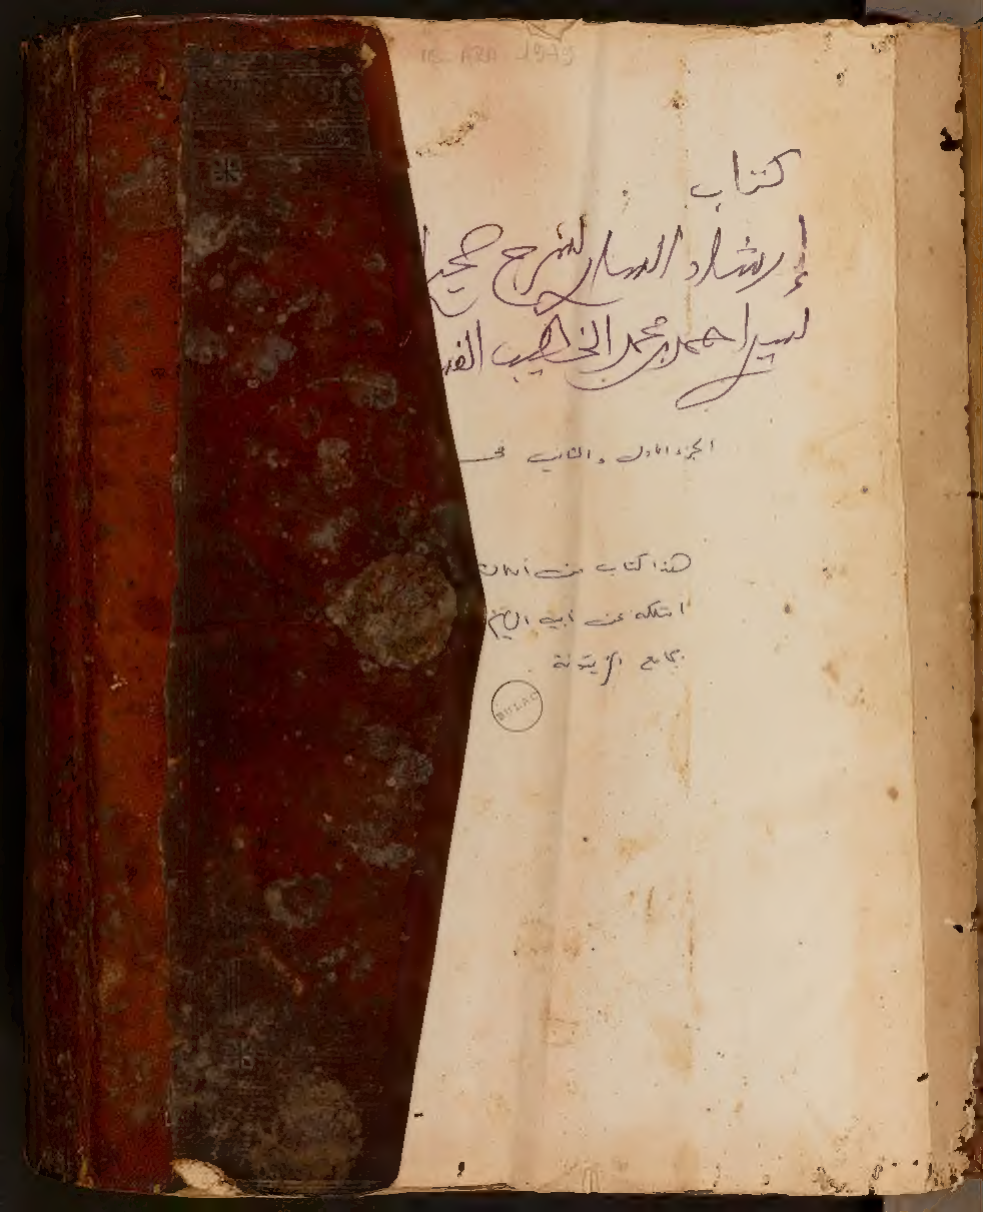 MS ARA 1979
كتاب
إرشاد الساري لشرح صحيح
لسيد احمد بن محمد الخطيب القس
الجزء الاول و الثاني في
هذا كتاب من
امتلكه عن ابيه الشيخ
بجامع الزيتونة
BULAC